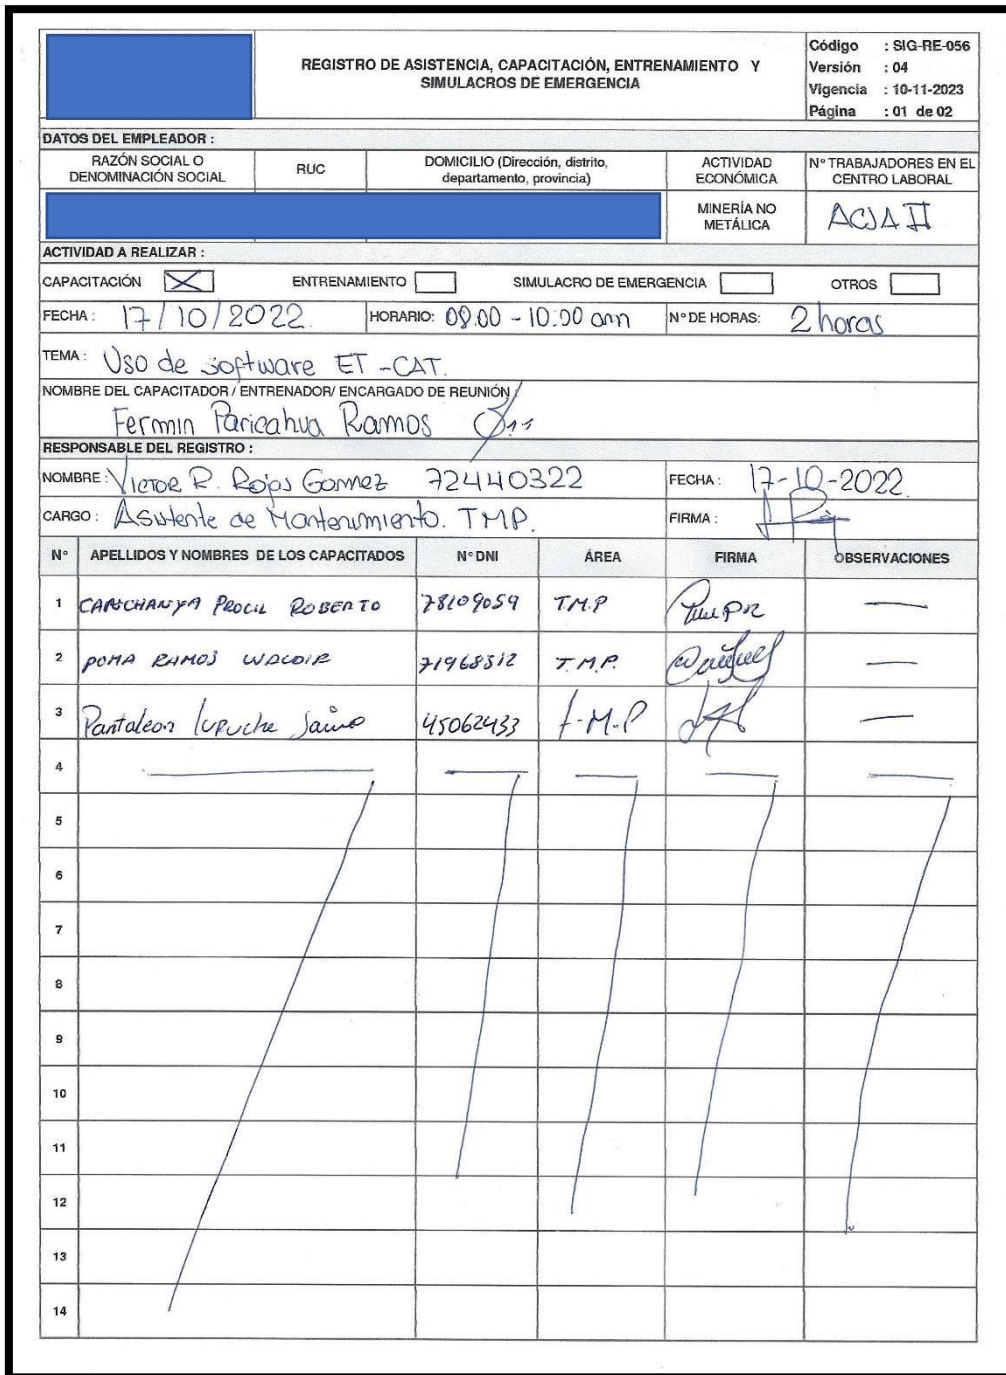 REGISTRO DE ASISTENCIA, CAPACITACIÓN, ENTRENAMIENTO Y
SIMULACROS DE EMERGENCIA
Código : SIG-RE-056
Versión : 04
Vigencia : 10-11-2023
Página : 01 de 02
DATOS DEL EMPLEADOR :
RAZÓN SOCIAL O DENOMINACIÓN SOCIAL
RUC
DOMICILIO (Dirección, distrito, departamento, provincia)
ACTIVIDAD ECONÓMICA
N° TRABAJADORES EN EL CENTRO LABORAL
MINERÍA NO METÁLICA
II
ACTIVIDAD A REALIZAR :
CAPACITACIÓN X ENTRENAMIENTO SIMULACRO DE EMERGENCIA OTROS
FECHA : 17/10/2022. HORARIO: 08.00 - 10:00 am N° DE HORAS: 2 horas
TEMA : Uso de software ET-CAT.
NOMBRE DEL CAPACITADOR / ENTRENADOR/ ENCARGADO DE REUNIÓN :
Fermin Paricahua Ramos
RESPONSABLE DEL REGISTRO :
NOMBRE : Victor R. Rojas Gomez 72440322 FECHA : 17-10-2022.
CARGO : Asistente de Mantenimiento. TMP. FIRMA :
N° APELLIDOS Y NOMBRES DE LOS CAPACITADOS N° DNI ÁREA FIRMA OBSERVACIONES
1 ROBERTO 78109059 T.M.P —
2 POMA RAMOS WALDIR 71968312 T.M.P. —
3 Pantaleon Jaime 45062433 T-M-P —
4
5
6
7
8
9
10
11
12
13
14